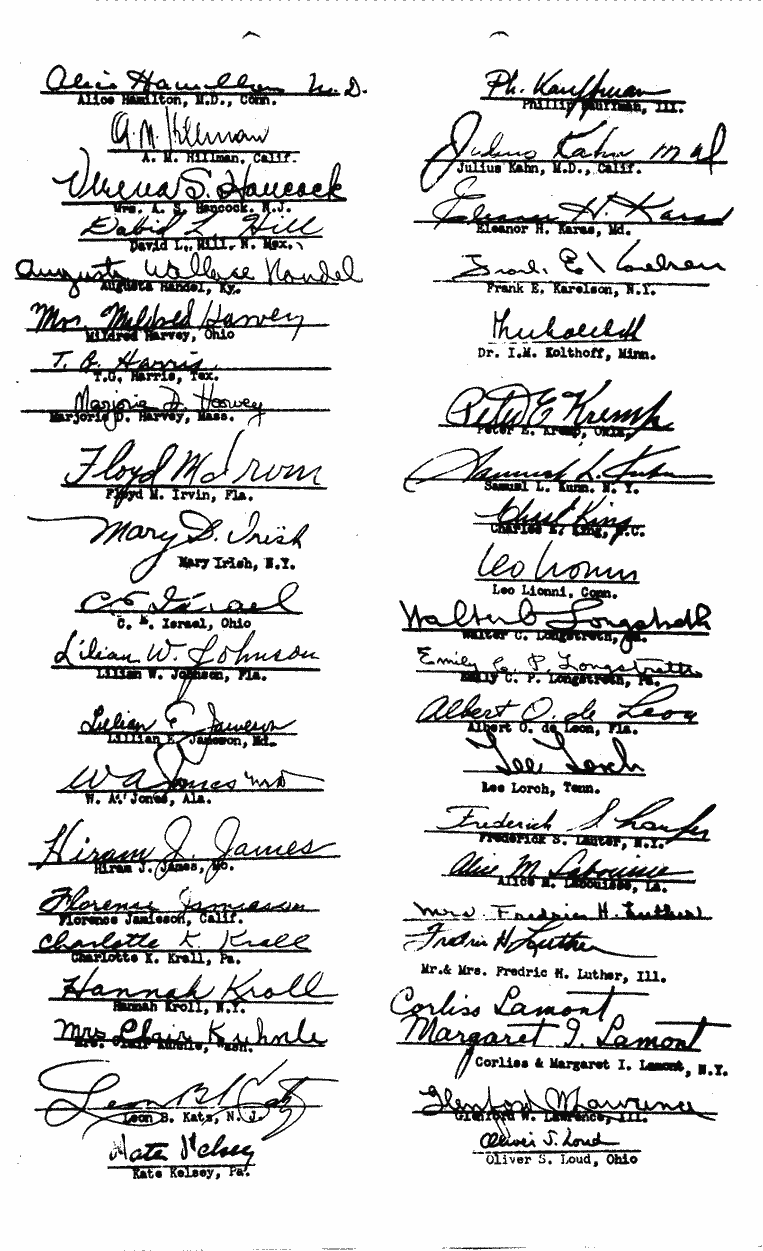 Alice Hamilton M.D.
Alice Hamilton, M.D., Conn.
A.M. Hillman
A. M. Hillman, Calif.
S. Hancock
Mrs. A. S. Hancock, N.J.
David L. Hill
David L. Hill, N. Mex.
Augusta Wallace Handel
Augusta Handel, Ky.
Mrs. Mildred Harvey
Mildred Harvey, Ohio
T. G. Harris
T.G. Harris, Tex.
Marjorie D. Harvey
Marjorie D. Harvey, Mass.
Floyd M Irvin
Floyd M. Irvin, Fla.
Mary D. Irish
Mary Irish, N.Y.
C E Israel
Israel, Ohio
Lilian W. Johnson
Lilian W. Johnson, Fla.
Lillian E. Jameson
Lillian E. Jameson, Md.
W A Jones MD
W. A. Jones, Ala.
Hiram J. James
Hiram J. James, Mo.
Florence Jamieson
Florence Jamieson, Calif.
Charlotte K. Krall
Charlotte K. Krall, Pa.
Hannah Kroll
Hannah Kroll, N.Y.
Mrs. Clair Kuhnle
Mrs. Clair Kuhnle, Wash.
Leon B Katz
Leon B. Katz, N.J.
Kate Kelsey
Kate Kelsey, Pa.
Ph. Kauffman
Phillip Kauffman, Ill.
Julius Kahn M D
Julius Kahn, M.D., Calif.
Eleanor H. Karas
Eleanor H. Karas, Md.
Frank E. Karelsen
Frank E. Karelson, N.Y.
Dr. I.M. Kolthoff, Minn.
Peter E Kremp
Peter E. Kremp, Okla.
Samuel L. Kuhn
Samuel L. Kuhn, N. Y.
Chas E King
Charles E. King, N.C.
Leo Lionni
Leo Lionni, Conn.
Walter C Longstreth
Walter C. Longstreth, Pa.
Emily C. P. Longstreth
Emily C. P. Longstreth, Pa.
Albert O. de Leon
Albert O. de Leon, Fla.
Lee Lorch
Lee Lorch, Tenn.
Frederick S
Frederick S. Lauter, N.Y.
Alice M. Labouisse
Alice M. Labouisse, La.
Mrs. Fredric H. Luther
Fredric H Luther
Mr.& Mrs. Fredric H. Luther, Ill.
Corliss Lamont
Margaret I. Lamont
Corliss & Margaret I. Lamont, N.Y.
Glenford W Lawrence
Glenford W. Lawrence, Ill.
Oliver S. Loud
Oliver S. Loud, Ohio